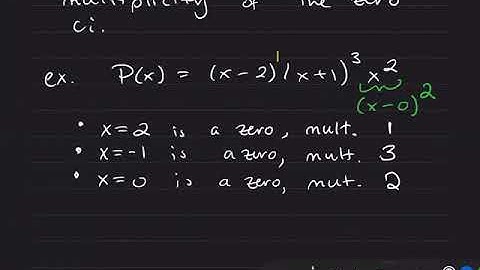 multiplicity of the zero
ci.
ex. P(x) = (x-2)¹(x+1)³x²
(x-0)²
• x=2 is a zero, mult. 1
• x=-1 is a zero, mult. 3
• x=0 is a zero, mut. 2